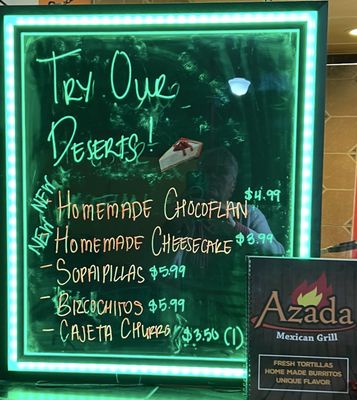 Try Our
Deserts!
NEW Homemade Chocoflan $4.99
NEW Homemade Cheesecake $3.99
- Sopaipillas $5.99
- Bizcochitos $5.99
- Cajeta Churro $3.50 (1)
Azada
Mexican Grill
FRESH TORTILLAS
HOME MADE BURRITOS
UNIQUE FLAVOR